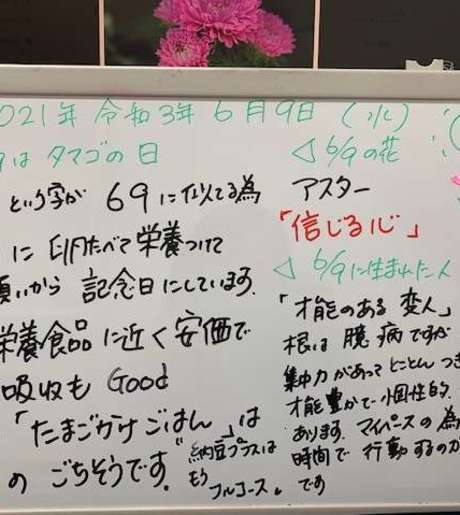 2021年 令和3年 6月9日 (水)
はタマゴの日
という字が 69に似てる為
に卵たべて栄養つけて
願いから 記念日にしています.
栄養食品に近く安価で
吸収も Good
「たまごかけごはん」は
の ごちそうです。
"納豆プラスは
もう
フルコース。
◁ 6/9の花
アスター
「信じる心」
◁ 6/9に生まれた人
「才能のある 変人」
根は 臆病ですが
集中力があって とことん つき
才能豊かで 個性的.
あります. マイペースの為
時間で 行動するのが
です